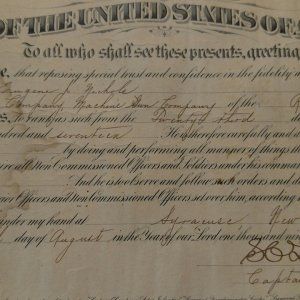 OF THE UNITED STATES OF
To all who shall see these presents, greeting
that reposing special trust and confidence in the fidelity
Eugene J. Nichols
Company Machine Gun Company of the
to rank as such from the Twenty third
hundred and seventeen. He is therefore carefully and
by doing and performing all manner of things
all Non Commissioned Officers and Soldiers under his command
And he is to observe and follow such orders and
or Non Commissioned Officers set over him, according
under my hand at Syracuse New
day of August in the Year of our Lord one thousand nine
Capta